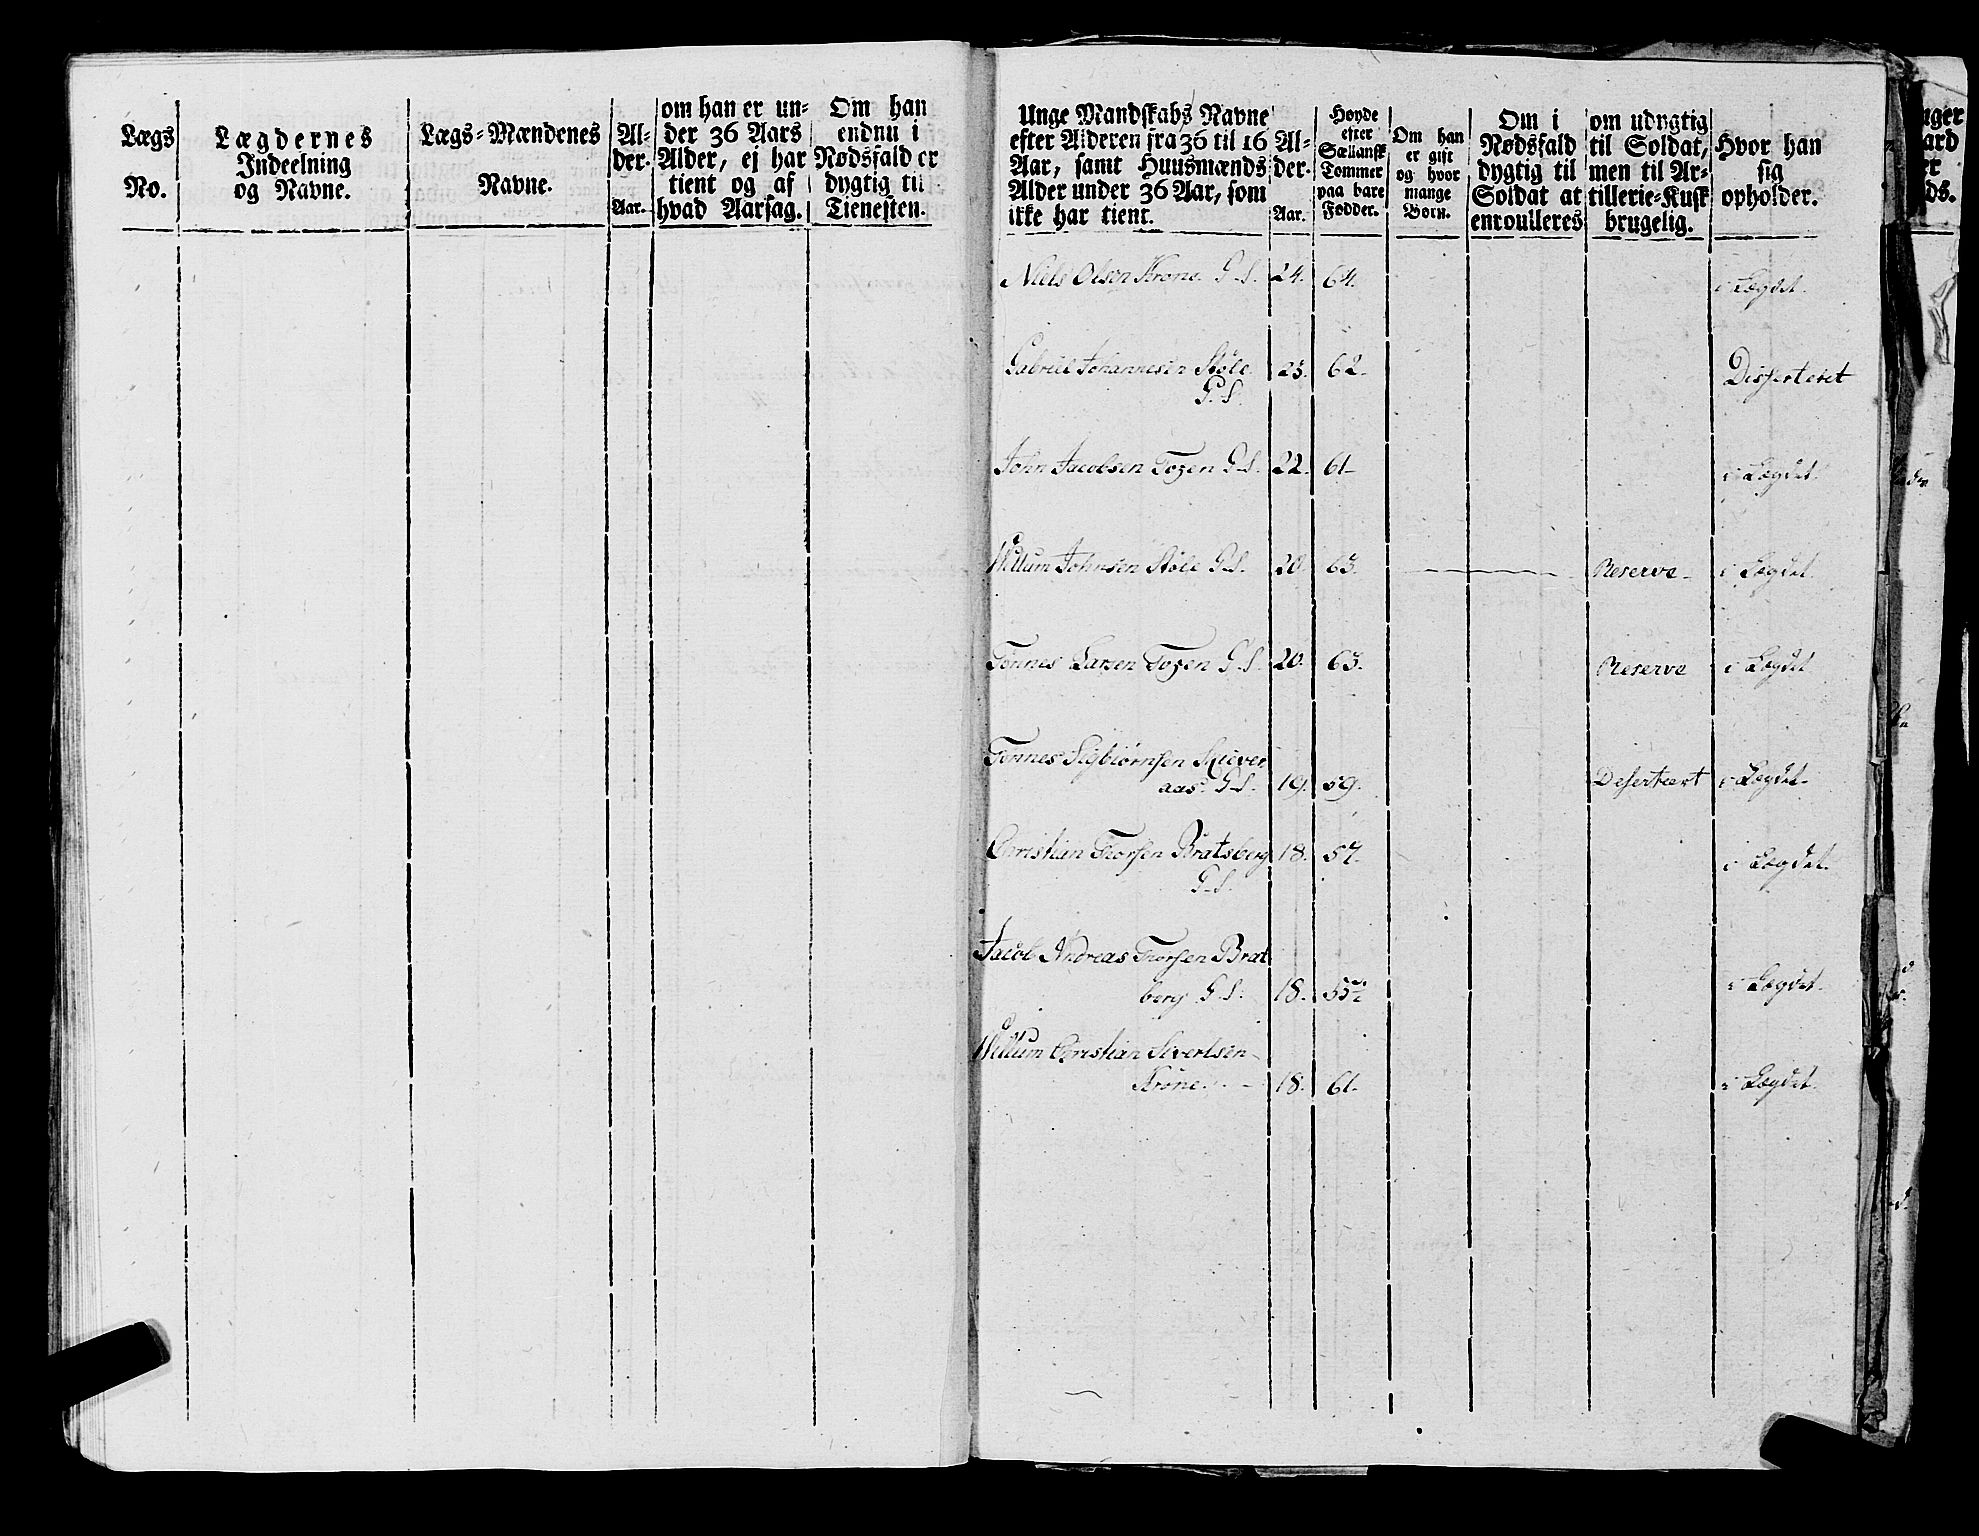 Lægs
No.
Lægdernes
Indeelning
og Navne.
Lægs-Mændenes
Navne.
Al-
der.
Aar.
om han er un-
der 36 Aars
Alder, ej har
tient og af
hvad Aarsag.
Om han
endnu i
Nødsfald er
dygtig til
Tienesten.
Unge Mandskabs Navne
efter Alderen fra 36 til 16
Aar, samt Huusmænds
Alder under 36 Aar, som
ikke har tient.
Al-
der.
Aar.
Høyde
efter
Sællansk
Tommer
paa bare
Fødder.
Om han
er gift
og hvor
mange
Børn.
Om i
Nødsfald
dygtig til
Soldat at
enroulleres
om udygtig
til Soldat,
men til Ar-
tillerie-Kusk
brugelig.
Hvor han
sig
opholder.
Niels Olsen Krone G.S. 24. 64. i Lægdet.
Gabriel Johannesen Støle 23. 62. Disserteret
G.S.
John Jacobsen Tozen G.S. 22. 61. i Lægdet.
Willum Johnsen Støle G.S. 20. 63. Reserve i Lægdet.
Tønnes Larsen Tozen G.S. 20. 63. Reserve i Lægdet.
Tønnes Sigbiørnsen Skiever
aas G.S. 19. 59. Deserteert i Lægdet.
Christian Thorsen Bratsberg 18. 57. i Lægdet.
G.S.
Jacob Andreas Thorsen Brat
berg G.S. 18. 55½ i Lægdet.
Willum Christian Sivertsen
Krone. 18. 61. i Lægdet.